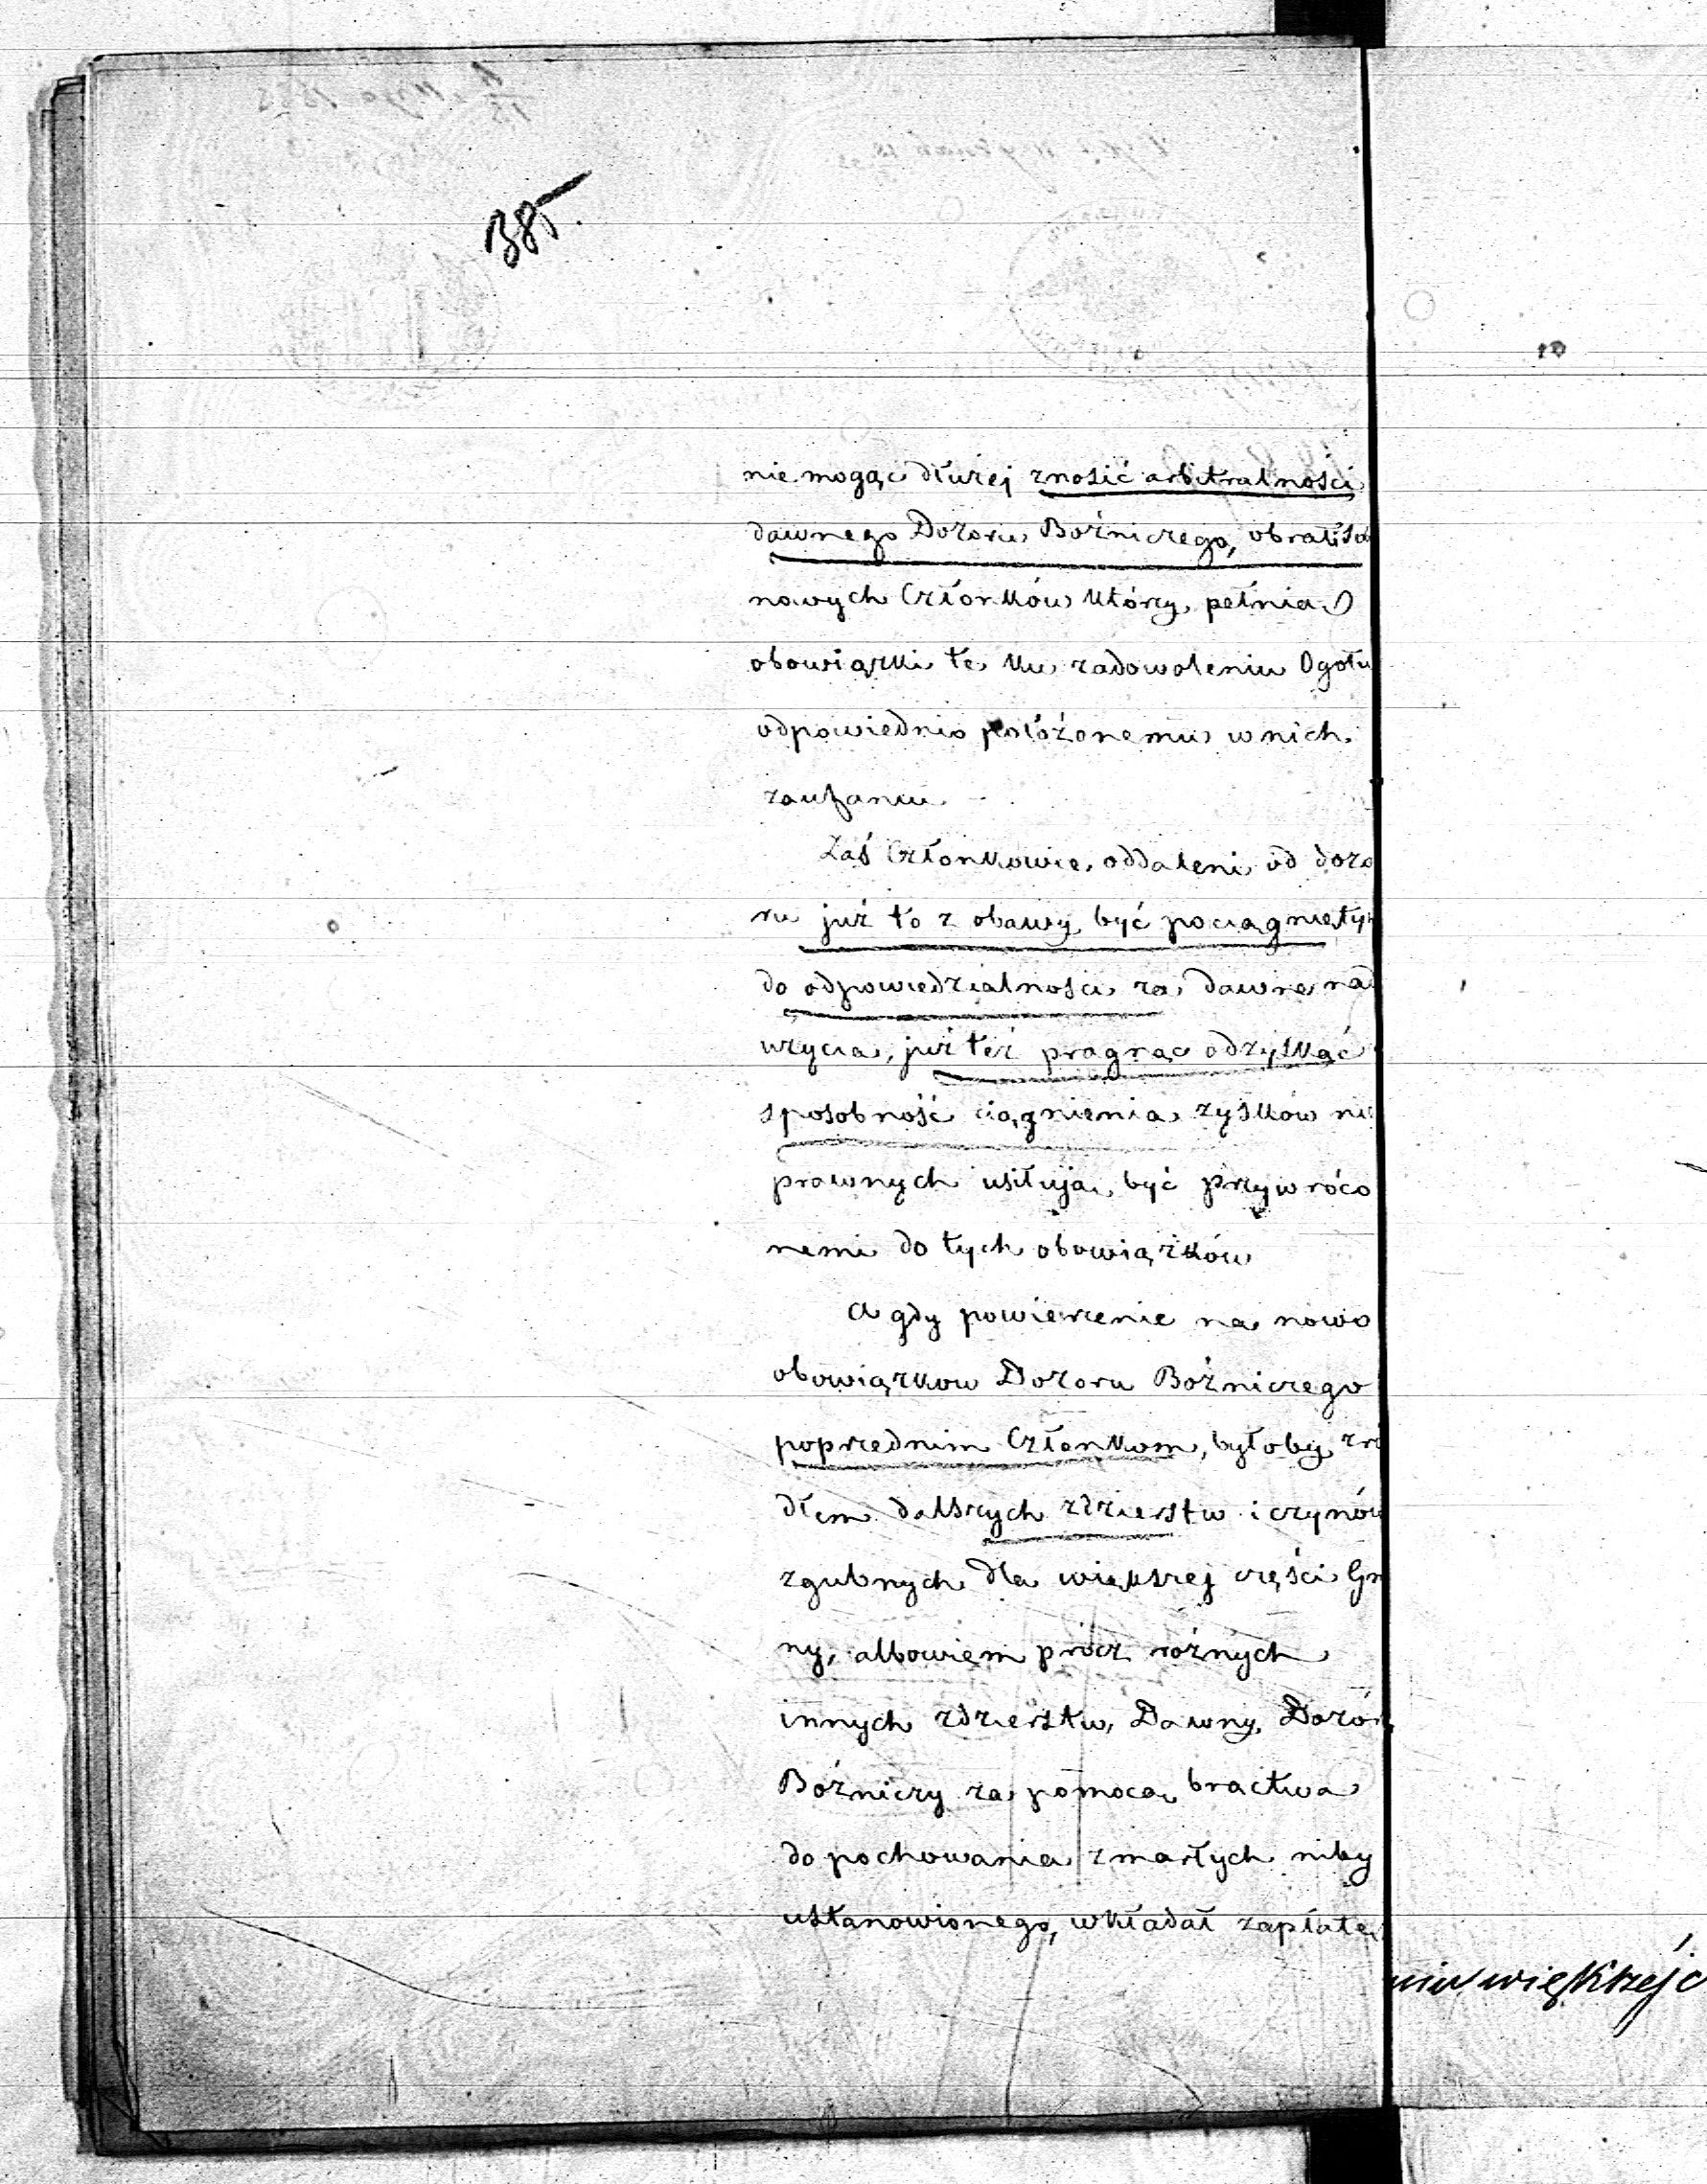 385.
nie mogąc dłużej znosić arbitralności
dawnego Dozoru Bóżniczego, obrali so
nowych Członków którzy pełnią
obowiązki te ku zadowoleniu Ogołu
odpowiednio położonemu w nich
zaufaniu
Zaś Członkowie, oddaleni od dozo
ru już to z obawy być pociągniętym
do odpowiedzialności za dawne nad
użycia, już też pragnąc odzyskać
sposobność ciągnienia zysków nie
prawnych usiłują być przywróco
nemi do tych obowiązków
A gdy powierzenie na nowo
obowiązkow Dozoru Bóżniczego
poprzednim Członkom, byłoby zró
dłem dalszych zdzierstw i czynów
zgubnych dla większej części Gm
ny, albowiem prócz rożnych
innych zdzierstw, Dawny Dozór
Bóżniczy za pomocą bractwa
do pochowania zmarłych niby
ustanowionego, wkładał zapłatę
niu większej c